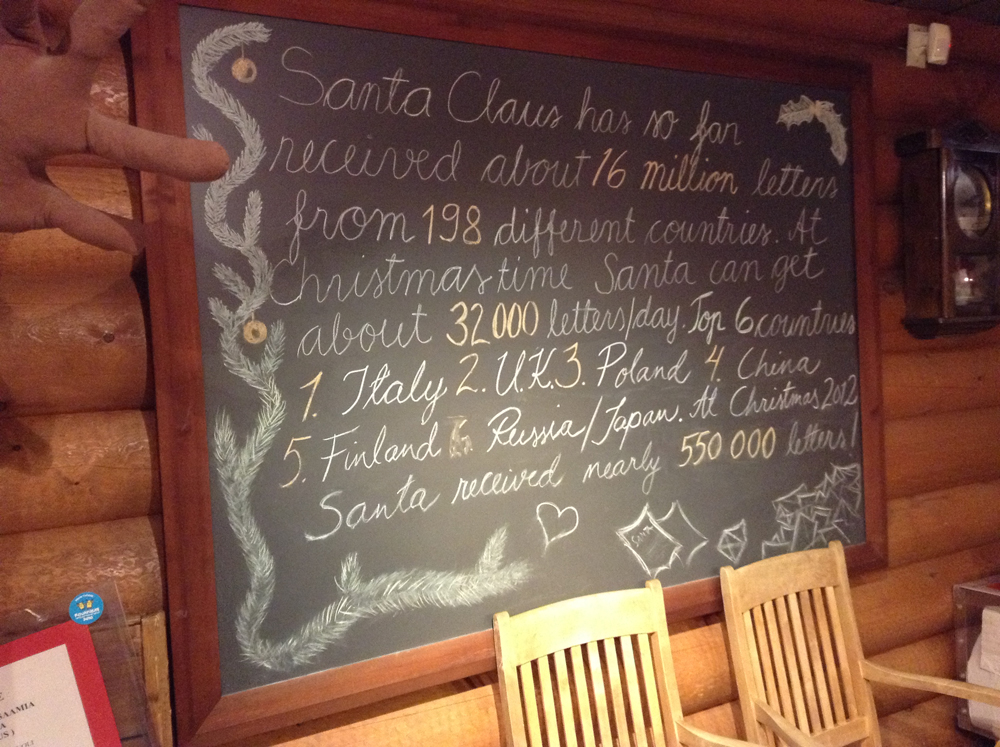 Santa Claus has so far
received about 16 million letters
from 198 different countries. At
Christmas time Santa can get
about 32 000 letters/day. Top 6 countries
1. Italy 2. U.K. 3. Poland 4. China
5. Finland 6. Russia/Japan. At Christmas 2012
Santa received nearly 550 000 letters!